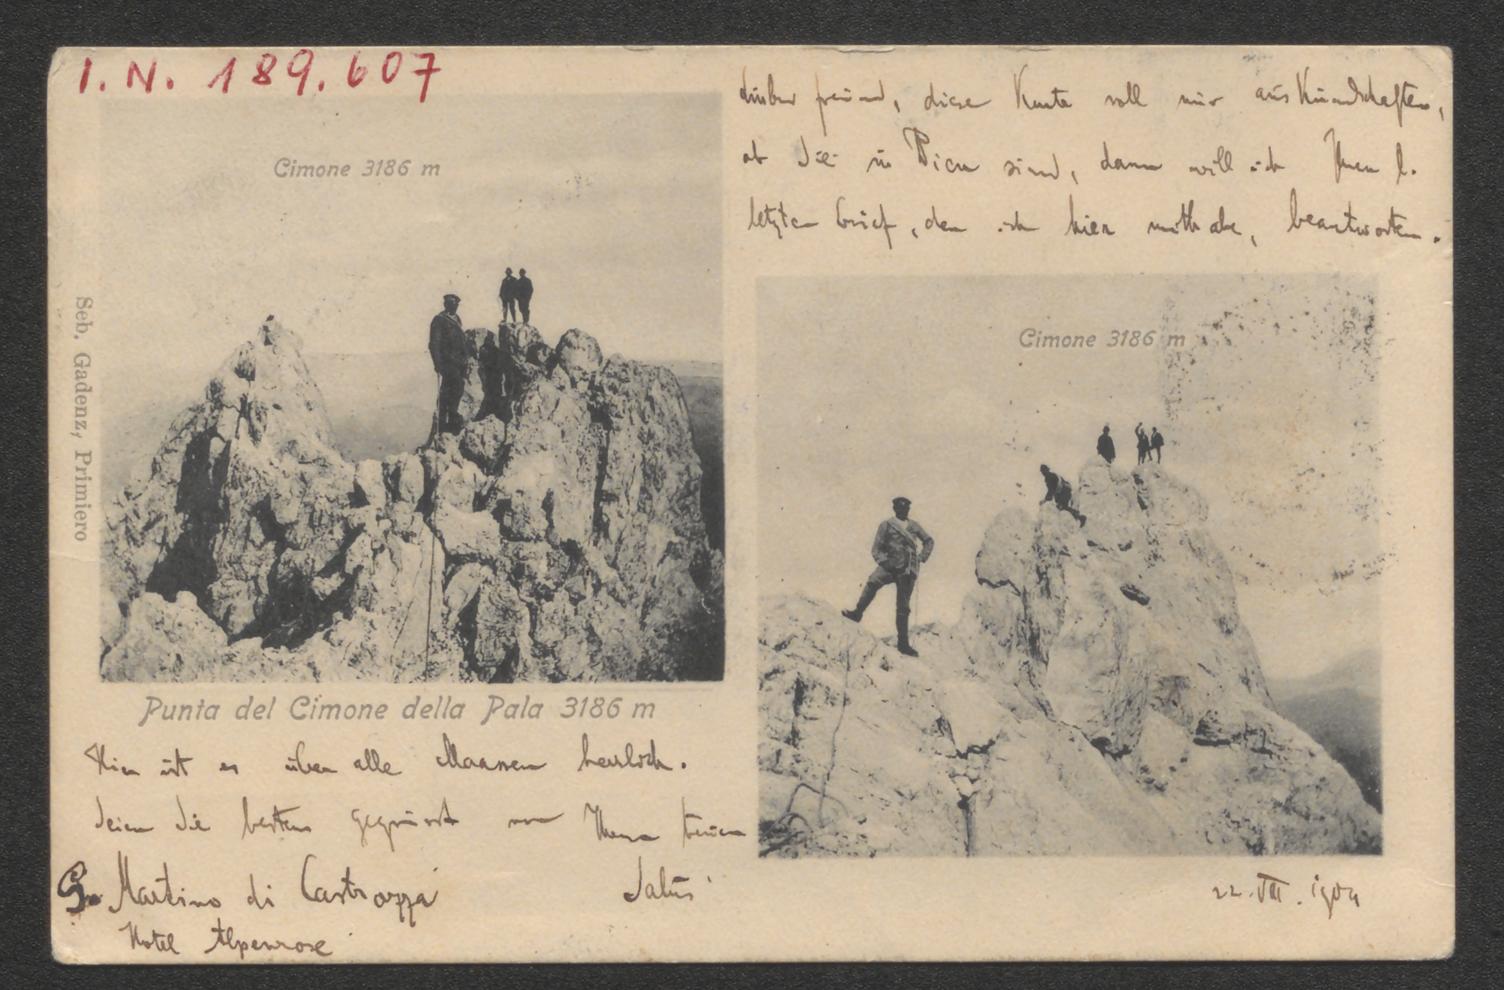 I. N. 189.607
lieber Freund, diese Karte soll mir auskundschaften,
ob Sie in Wien sind, dann will ich Ihren l.
letzten Brief, den ich hier mithabe, beantworten.
Cimone 3186 m
Cimone 3186 m
Seb. Gadenz, Primiero
Punta del Cimone della Pala 3186 m
Hier ist es über alle Maassen herrlich.
Seien Sie bestens gegrüsst von Ihrem treuen
Salus
S. Martino di Castrozza
Hotel Alpenrose
22. VII. 1904